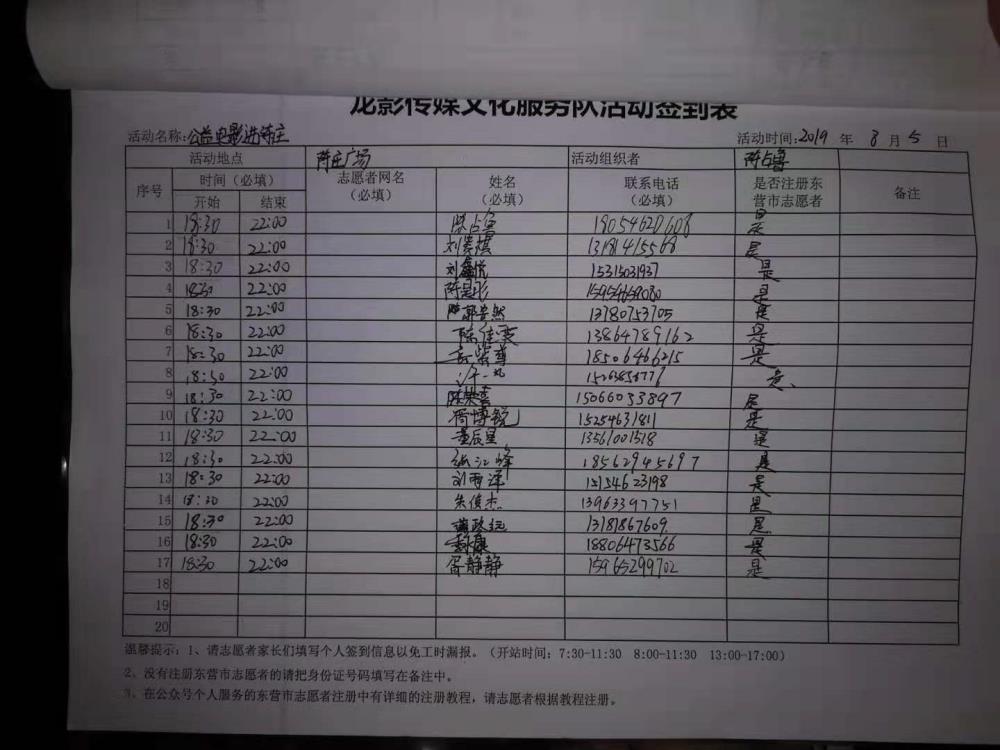 龙影传媒文化服务队活动签到表
活动名称:公益电影进陈庄 活动时间:2019 年 8 月 5 日
活动地点 陈庄广场 活动组织者 陈占鲁
序号 时间(必填) 志愿者网名(必填) 姓名(必填) 联系电话(必填) 是否注册东营市志愿者 备注
开始 结束
1 18:30 22:00 陈占鲁 19054620608 是
2 18:30 22:00 13181415568 是
3 18:30 22:00 刘鑫悦 15315031937 是
4 18:30 22:00 是
5 18:30 22:00 13780753705 是
6 18:30 22:00 13864789162 是
7 18:30 22:00 18506466215 是
8 18:30 22:00 是
9 18:30 22:00 15066033897 是
10 18:30 22:00 15254631811 是
11 18:30 22:00 董辰星 13561001518 是
12 18:30 22:00 张江峰 18562945697 是
13 18:30 22:00 刘雨泽 15154623198 是
14 18:30 22:00 朱俊杰 13963397751 是
15 18:30 22:00 13181867609 是
16 18:30 22:00 18806473566 是
17 18:30 22:00 静静 15965299702 是
18
19
20
温馨提示:1、请志愿者家长们填写个人签到信息以免工时漏报。(开站时间:7:30-11:30 8:00-11:30 13:00-17:00)
2、没有注册东营市志愿者的请把身份证号码填写在备注中。
3、在公众号个人服务的东营市志愿者注册中有详细的注册教程,请志愿者根据教程注册。